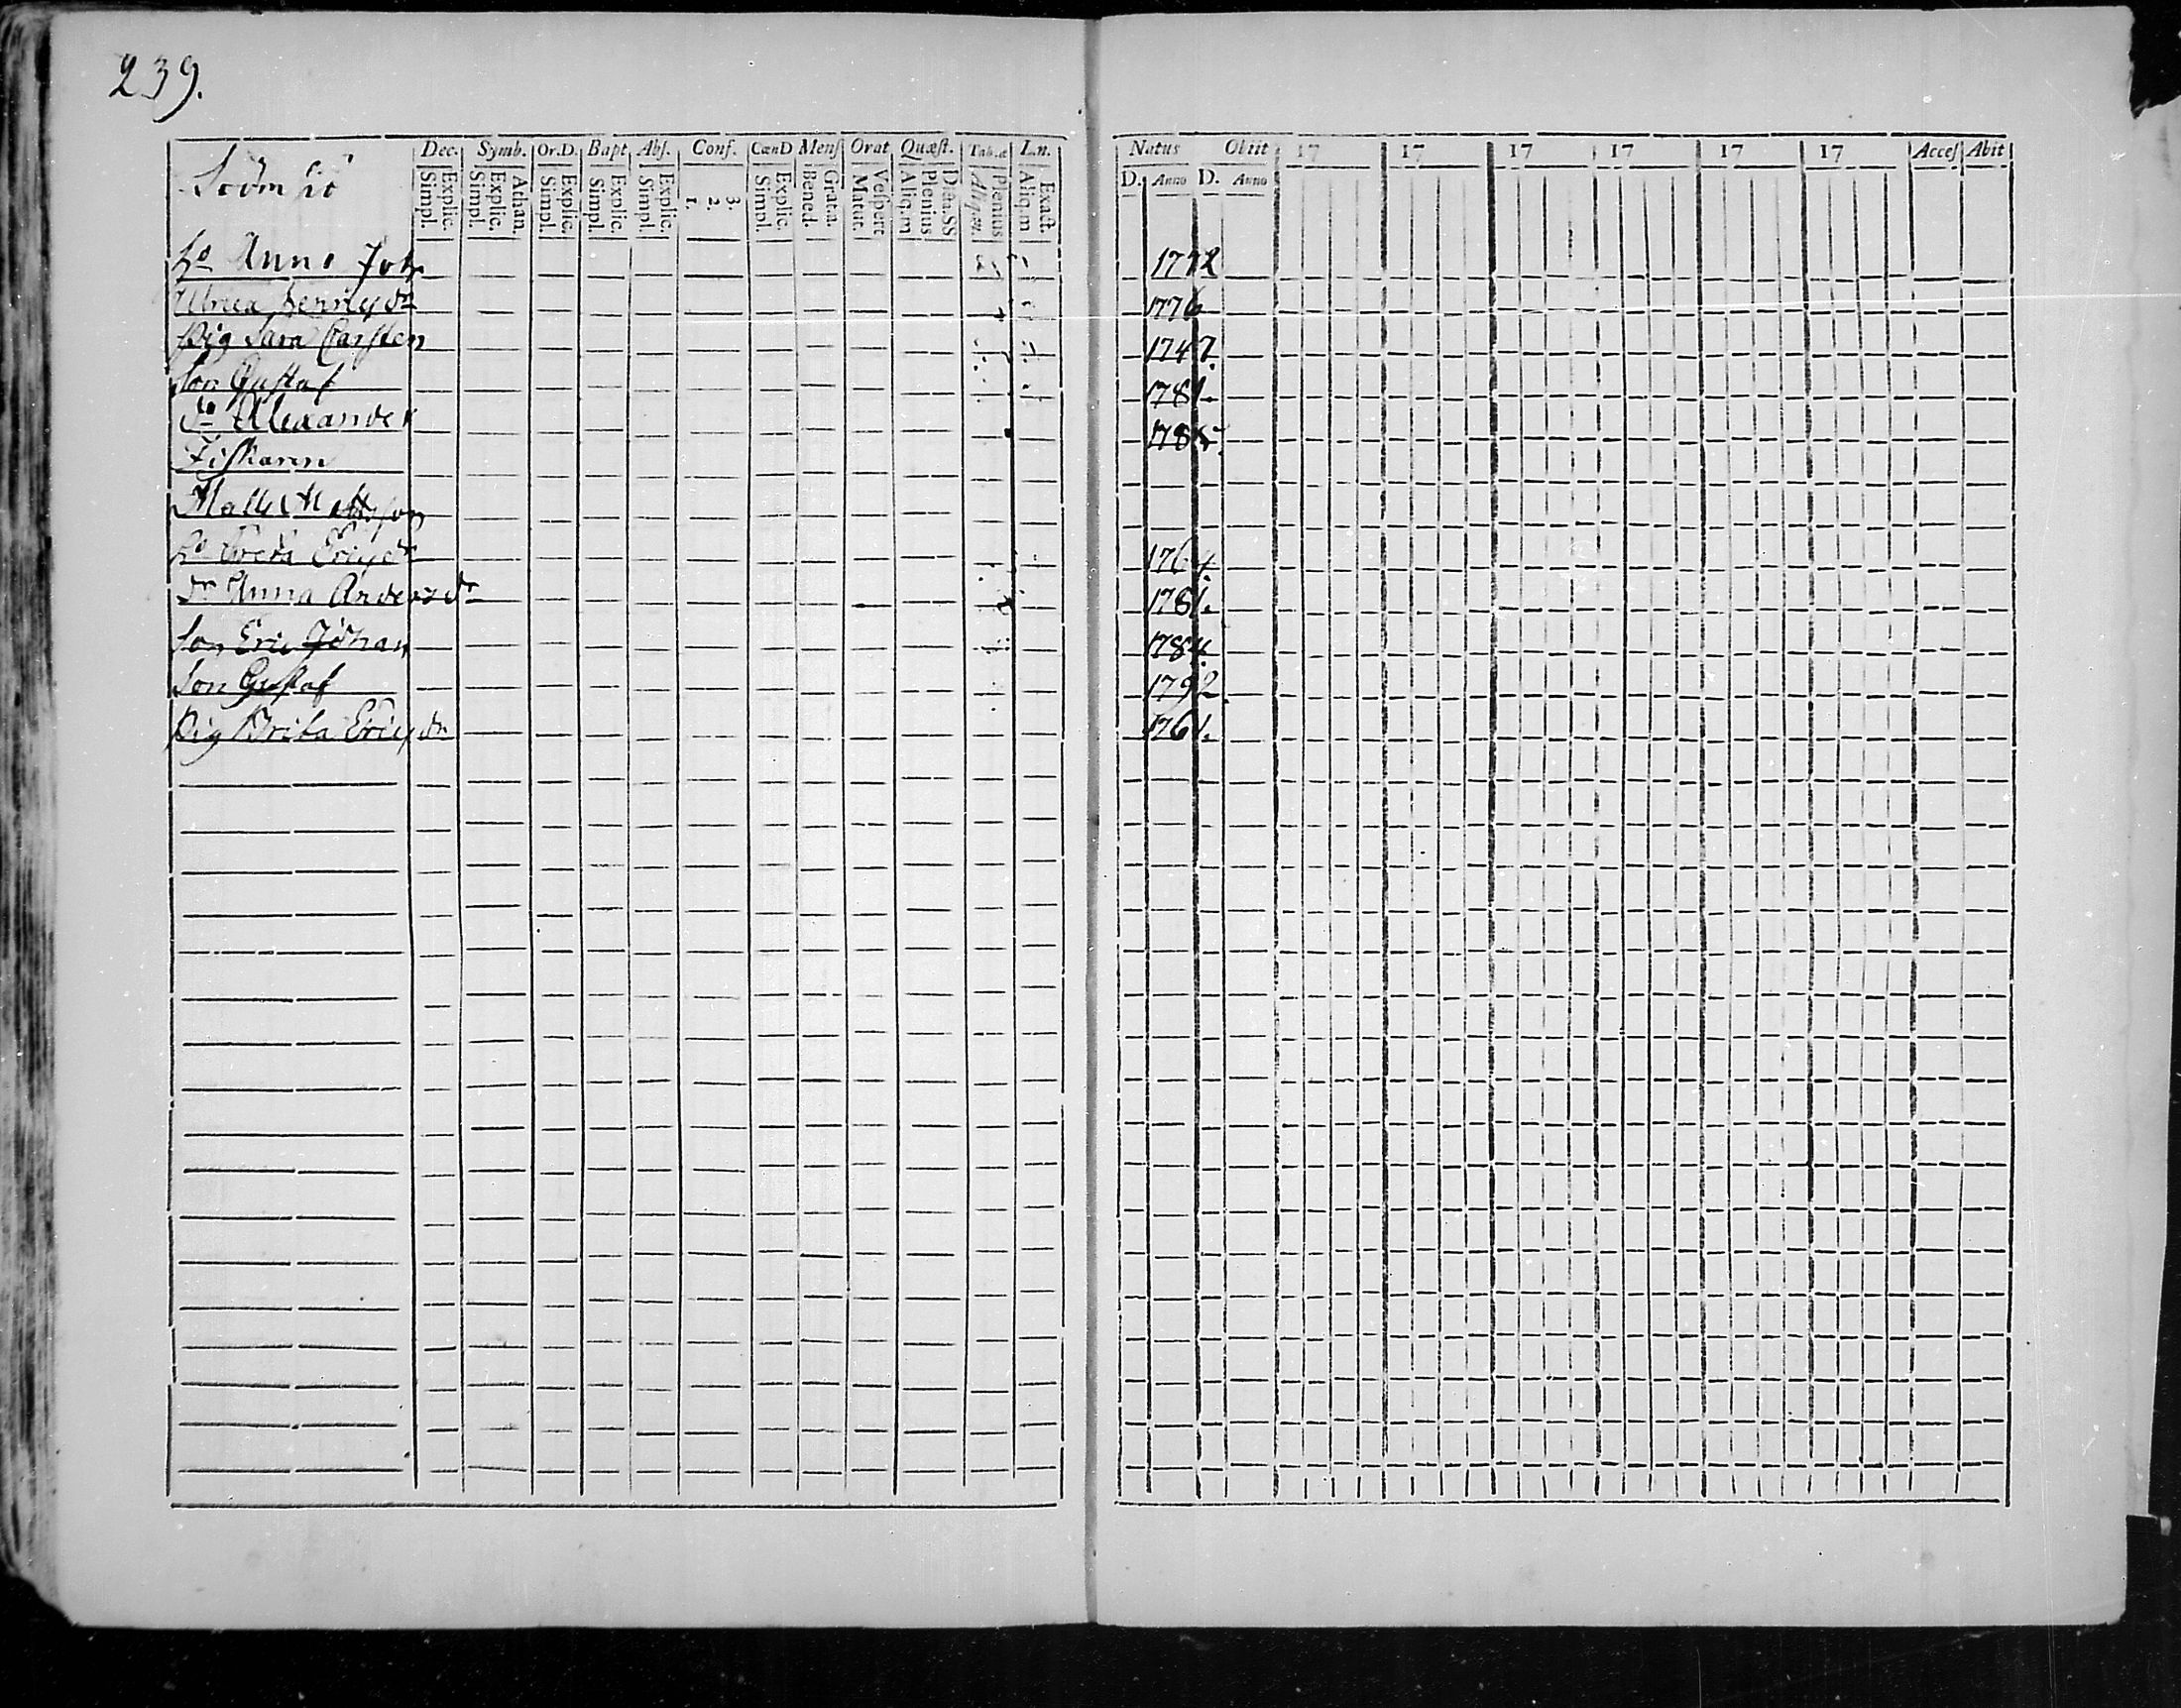 239.
Dec. Symb. Or.D. Bapt Abs. Conf. CœnD Mens Orat Quæst. Tab.æ L.n.
Explic. Simpl. Athan. Explic. Simpl. Explic. Simpl. Explic. Simpl. Explic. Simpl. 3. 2. 1. Explic. Simpl. Grat.a. Bened. Vespert Matut. Dicta SS Plenius Aliq.m Plenius Aliq.m Exact. Aliq.m
Natus Obiit 17 17 17 17 17 17 Acces Abit
D. Anno D. Anno
Hu Anna Joh 1772
Ulrica Henricdr 1776
Pig Sara Carsten 1747.
Son Gustaf 1781.
do Alexander 1785.
Fiskaren
Matts Mattsson
Hu Greta Ericdr 1764.
dr Anna Andersdr 1781.
Son Eric Johan 1784.
Son Gustaf 1792.
Pig Brita Ericdr 1761.